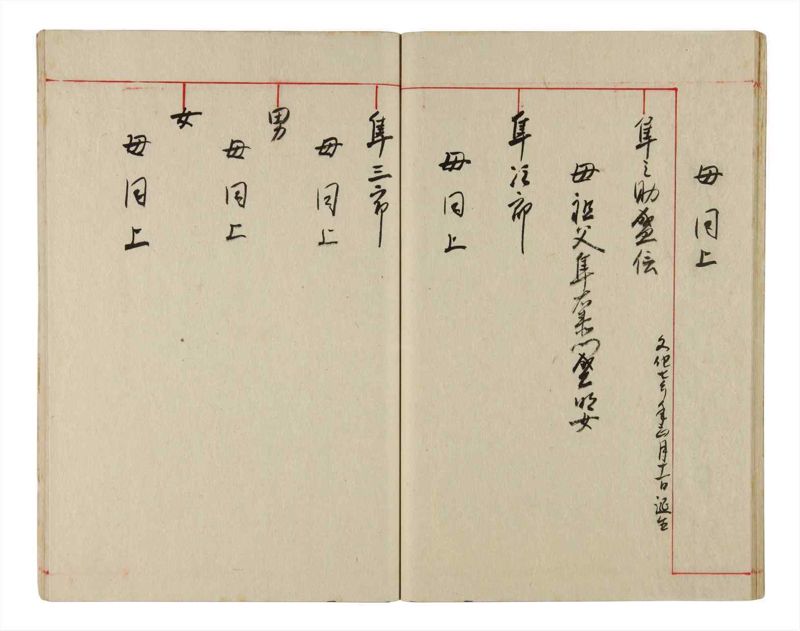 母同上
隼之助盛伝
文化七午年正月十一日誕生
母祖父隼右衛門盛明女
隼次郎
母同上
隼三郎
母同上
男
母同上
女
母同上